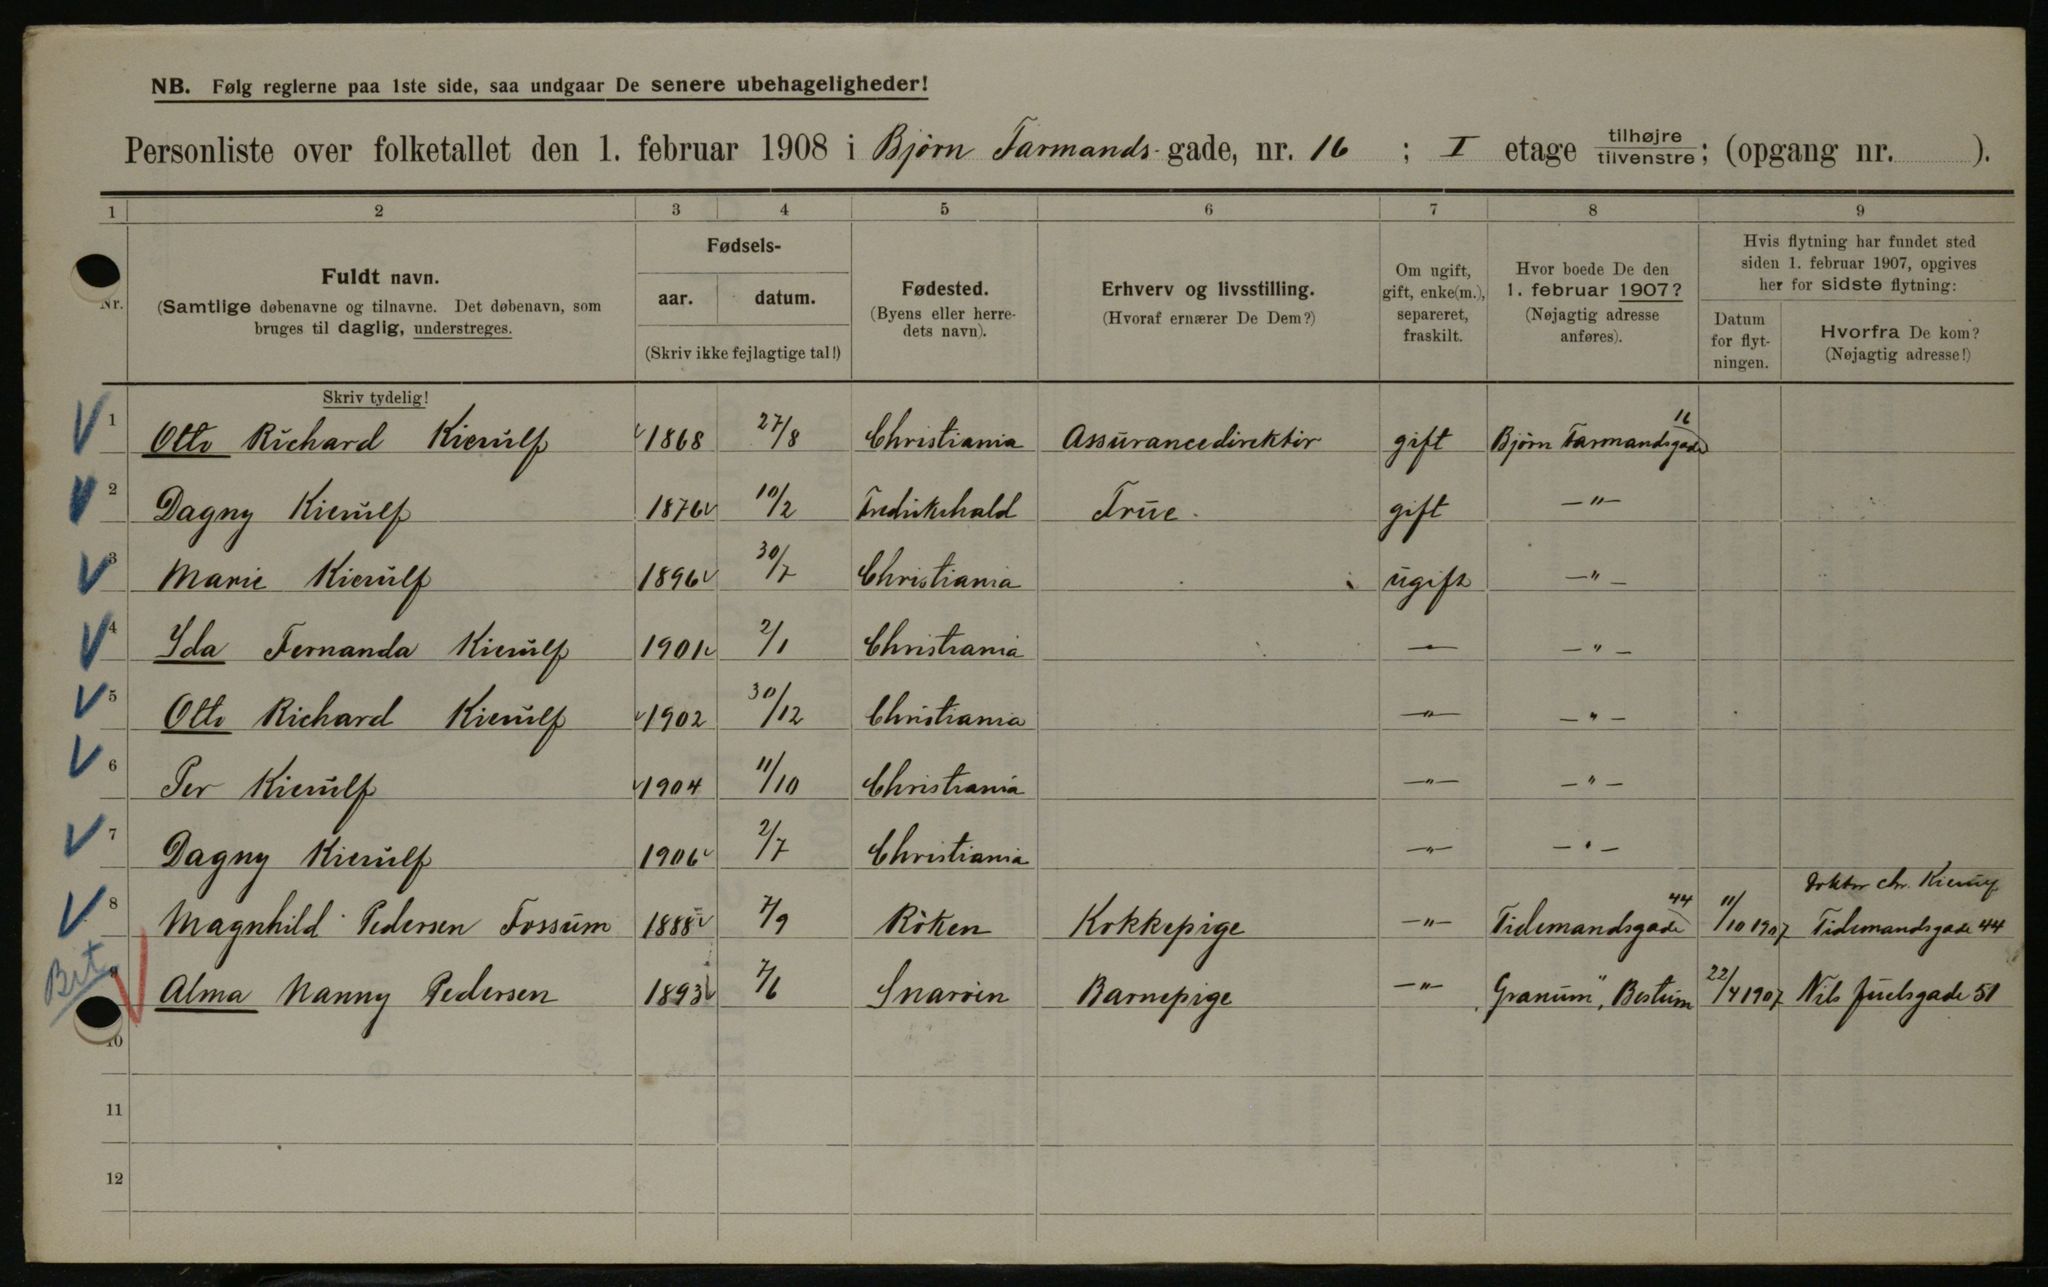 NB. Følg reglerne paa 1ste side, saa undgaar De senere ubehageligheder!
Personliste over folketallet den 1. februar 1908 i Bjørn Farmands-gade, nr. 16 ; I etage tilhøjre tilvenstre; (opgang nr. ).
1 2 3 4 5 6 7 8 9
Nr.
Fuldt navn.
(Samtlige døbenavne og tilnavne. Det døbenavn, som
bruges til daglig, understreges.
Skriv tydelig!
Fødsels-
aar. datum.
(Skriv ikke fejlagtige tal!)
Fødested.
(Byens eller herre-
dets navn).
Erhverv og livsstilling.
(Hvoraf ernærer De Dem?)
Om ugift,
gift, enke(m.),
separeret,
fraskilt.
Hvor boede De den
1. februar 1907?
(Nøjagtig adresse
anføres).
Hvis flytning har fundet sted
siden 1. februar 1907, opgives
her for sidste flytning:
Datum
for flyt-
ningen.
Hvorfra De kom?
(Nøjagtig adresse!)
1 Otto Richard Kierulf 1868 27/8 Christiania Assurancedirektör gift Bjørn Farmandsgade 16
2 Dagny Kierulf 1876 10/2 Fredrikshald Frue gift —"—
3 Marie Kierulf 1896 30/7 Christiania ugift —"—
4 Ida Fernanda Kierulf 1901 2/1 Christiania —"— —"—
5 Otto Richard Kierulf 1902 30/12 Christiania —"— —"—
6 Per Kierulf 1904 11/10 Christiania —"— —"—
7 Dagny Kierulf 1906 2/7 Christiania —"— —"—
Doktor Chr. Kierulf
8 Magnhild Pedersen Fossum 1888 7/9 Röken Kokkepige —"— Tidemandsgade 44 11/10 1907 Tidemandsgade 44
Bet.
9 Alma Nanny Pedersen 1893 7/6 Snaröen Barnepige —"— "Granum", Bestum 22/4 1907 Nils Juelsgade 51
10
11
12